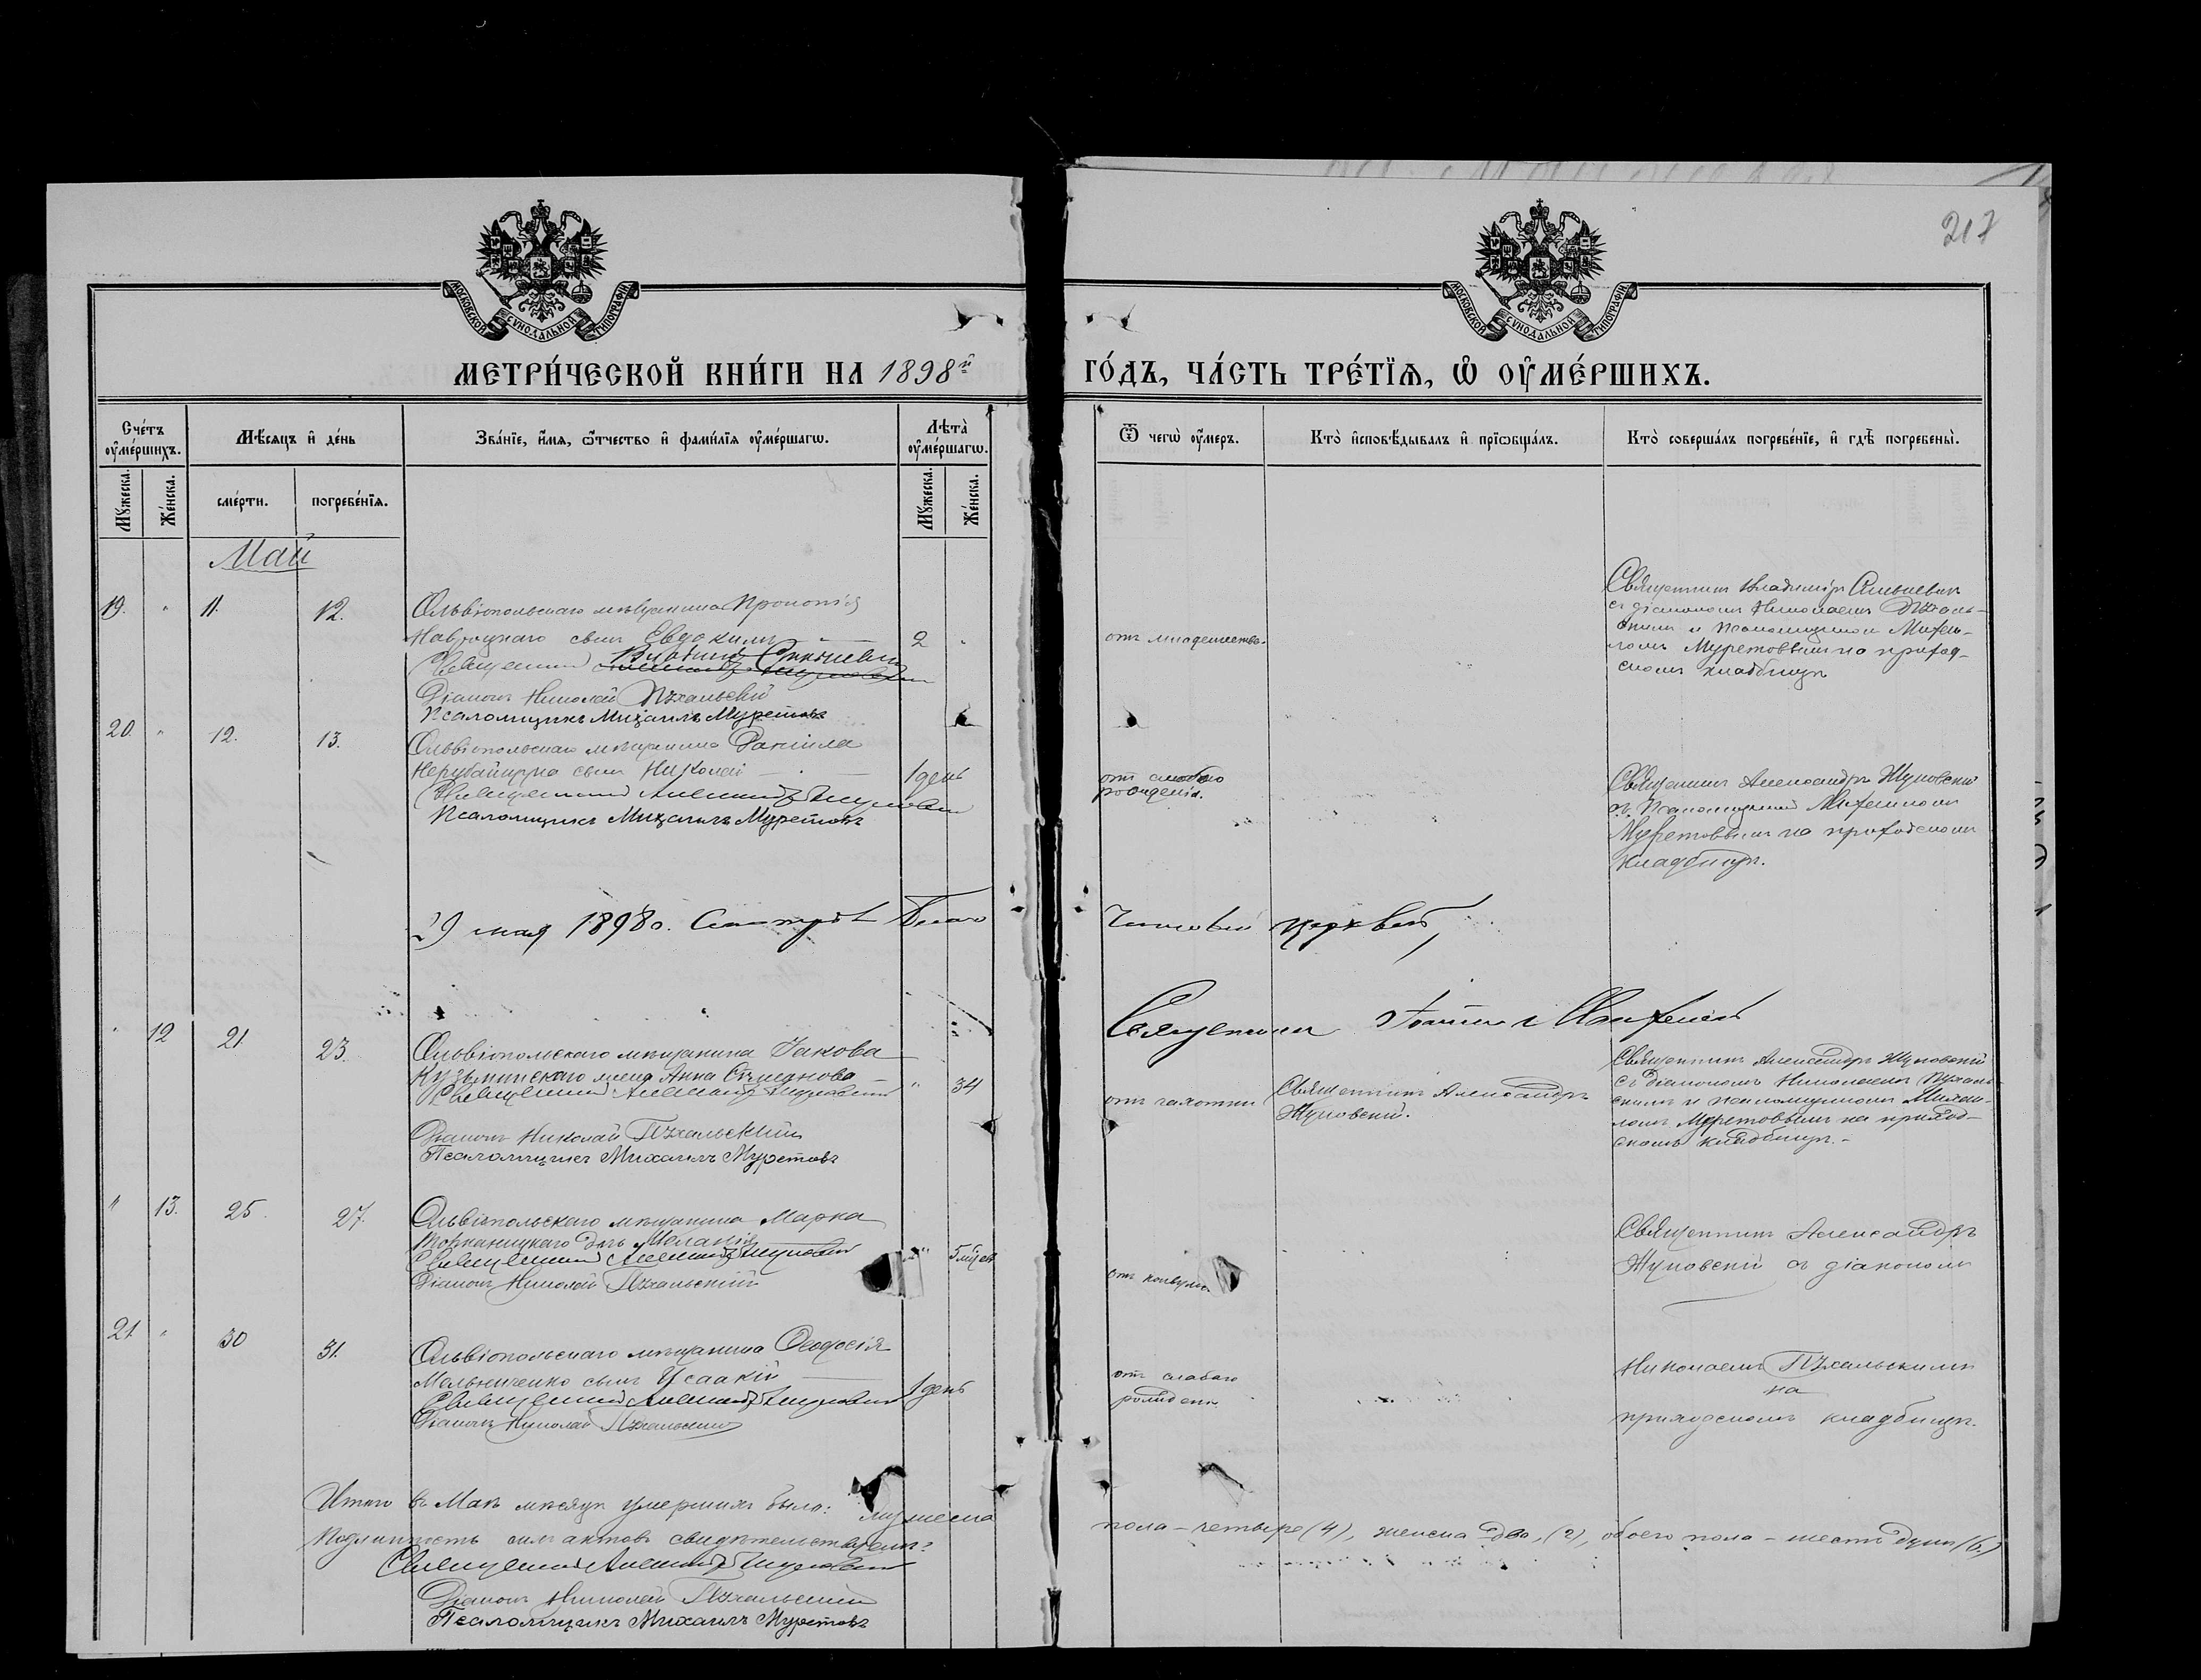 217
МОСКОВСКОЙ СУНОДАЛЬНОЙ ТИПОГРАФІИ
МОСКОВСКОЙ СУНОДАЛЬНОЙ ТИПОГРАФІИ
МЕТРИ́ЧЕСКОЙ КНИ́ГИ НА 1898й
ГО́ДЪ, ЧА́СТЬ ТРЕ́ТЇѦ, Ѡ ОУ҆МЕ́РШИХЪ.
Сче́тъ оу҆ме́ршихъ.
Мѣ́сяцъ и҆ де́нь
Зва́нїе, и҆́мя, ѻ҆́тчество и҆ фами́лїя оу҆ме́ршагѡ.
Лѣ́та̀ оу҆ме́ршагѡ.
Ѿ чегѡ̀ оу҆́меръ.
Кто̀ и҆сповѣ́дывалъ и҆ прїѡбща́лъ.
Кто̀ соверша́лъ погребе́нїе, и҆ гдѣ̀ погребены̀.
Мꙋ́жеска.
Же́нска.
сме́рти.
погребе́нїя.
Мꙋ́жеска.
Же́нска.
Май
19. " 11. 12. Ольвіопольскаго мѣщанина Прокопія
сынъ Евдокимъ — 2 "
Діаконъ Николай Пѣхальскій
Псаломщикъ Михаилъ Муретовъ
отъ младенчества.
Священникъ Владиміръ
съ діакономъ Николаемъ Пѣхаль-
скимъ и псаломщикомъ Михаи-
ломъ Муретовымъ на приход-
скомъ кладбищѣ
20. " 12. 13. Ольвіопольскаго мѣщанина Даніила
сынъ Николай — 1 день
Священникъ Александръ Жуковскій
Псаломщикъ Михаилъ Муретовъ
отъ слабаго
рожденія.
Священникъ Александръ Жуковскій
съ псаломщикомъ Михаиломъ
Муретовымъ на приходскомъ
кладбищѣ.
29 мая 1898 г. Смотрѣлъ Благо
чинный церквей,
Священникъ
" 12 21 23. Ольвіопольскаго мѣщанина Іакова
Кузьминскаго жена Анна — " 34
Священникъ Александръ Жуковскій
Діаконъ Николай Пѣхальскій
Псаломщикъ Михаилъ Муретовъ
отъ чахотки
Священникъ Александръ
Жуковскій.
Священникъ Александръ Жуковскій
съ діакономъ Николаемъ Пѣхаль-
скимъ и псаломщикомъ Михаи-
ломъ Муретовымъ на приход-
скомъ кладбищѣ. -
" 13. 25. 27. Ольвіопольскаго мѣщанина Марка
дочь Меланія " 5 мѣсяц
Священникъ Александръ Жуковскій
Діаконъ Николай Пѣхальскій
отъ конвульс
Священникъ Александръ
Жуковскій съ діакономъ
21 " 30 31. Ольвіопольскаго мѣщанина Ѳеодосія
Мельниченко сынъ Исаакій — 1 день
Священникъ Александръ Жуковскій
Діаконъ Николай Пѣхальскій
отъ слабаго
рожден.
Николаемъ Пѣхальскимъ
на
приходскомъ кладбищѣ.
Итого въ Маѣ мѣсяцѣ умершихъ было: мужеска
пола – четыре (4), женска два, (2), обоего пола – шесть душъ (6.)
Подлинность сихъ актовъ свидѣтельствуемъ:
Священникъ Александръ Жуковскій
Діаконъ Николай Пѣхальскій
Псаломщикъ Михаилъ Муретовъ